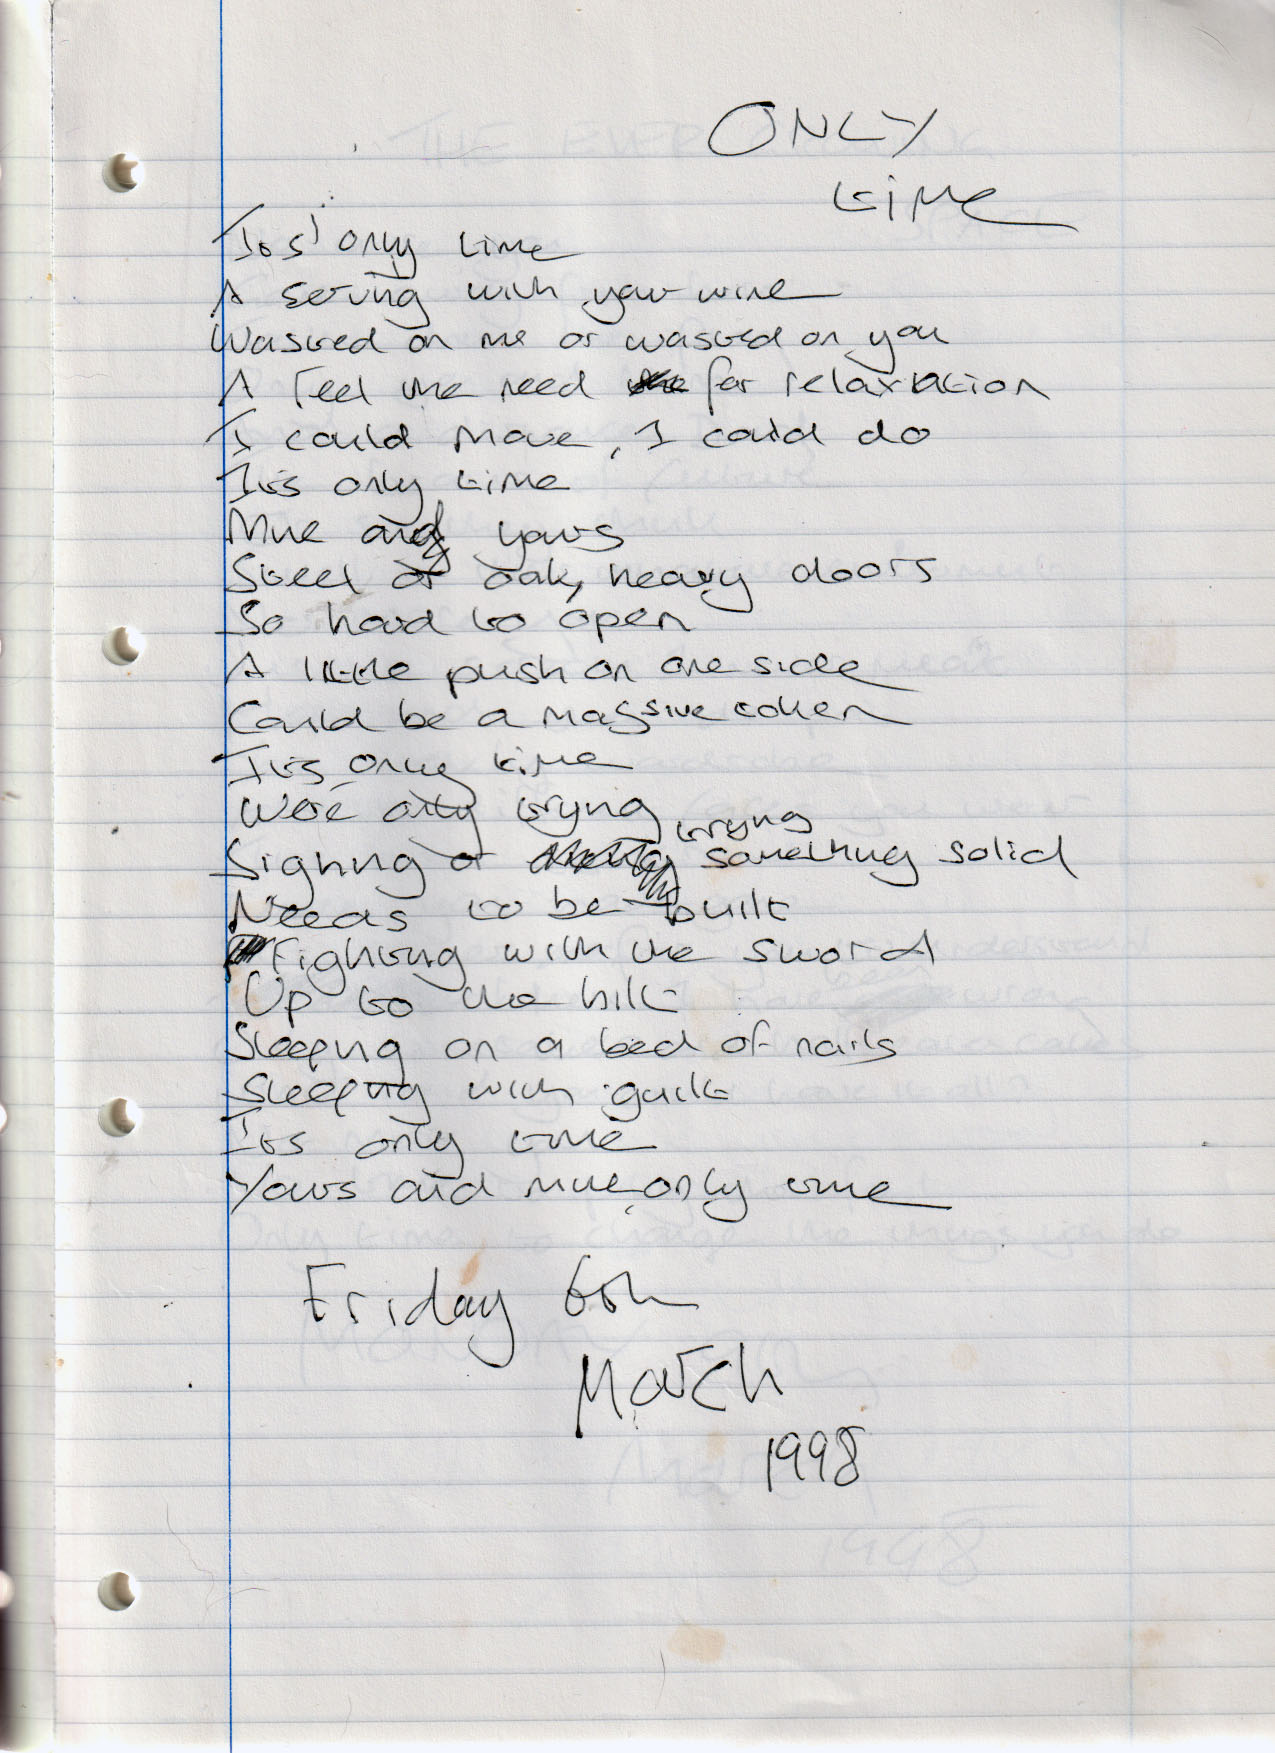 ONLY
time
Its' only time
A serving with your wine
Wasted on me or wasted on you
A feel the need for relaxation
I could move, I could do
Its only time
Mine and yours
Steel or oak, heavy doors
So hard to open
A little push on one side
Could be a massive token
Its only time
Were only trying
trying
Sighing or something solid
Needs to be built
Fighting with the sword
Up to the hilt
Sleeping on a bed of nails
Sleeping with guilt
Its only time
Yours and mine, only time
Friday 6th
March
1998